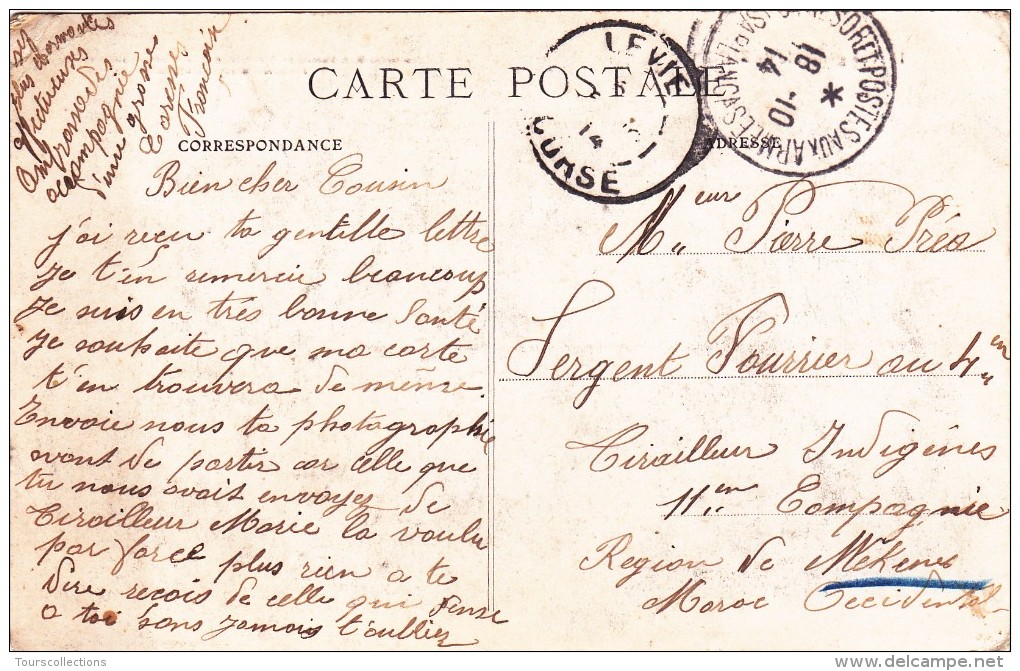 CARTE POSTALE
CORRESPONDANCE
ADRESSE
LEVIE
14
CORSE
POSTES AUX ARMEES
18-10
14
Bien cher Cousin
j'ai reçu ta gentille lettre
Je t'en remercie beaucoup
Je suis en trés bonne Santé
Je souhaite que ma carte
t'en trouvera de même.
Envoie nous ta photographie
avant de partir car celle que
tu nous avait envoyez de
Tirailleur Marie la voulu
par force plus rien a te
dire reçois de celle qui pense
a toi sans jamais t'oulliez
ses
plus charmantes
affectueuses
Ambrassades
accompagnie
d'une grosse
Caresses
Mr Pierre
Sergent Fourrier au 4em
Tirailleur Indigénes
11em Compagnie
Région de Mékenes
Maroc Occidental
Tourscollections
delcampe.net